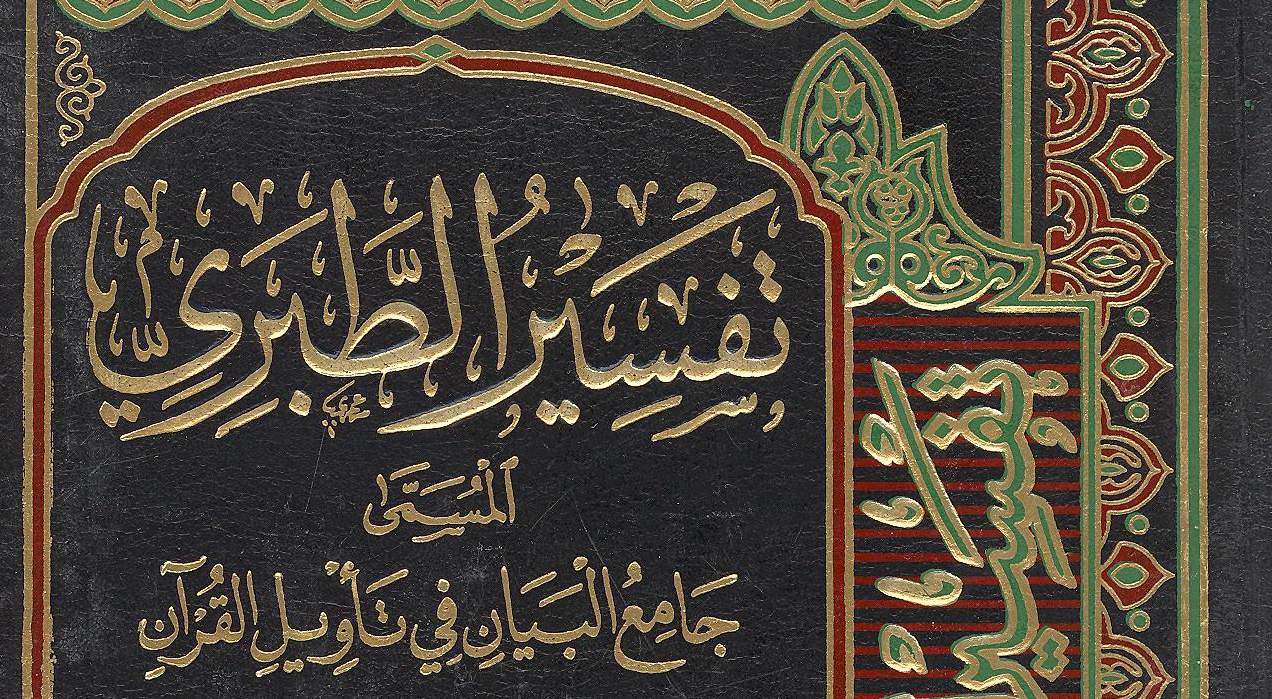 تَفْسِيرُ الطَّبَرِيِّ
المُسَمَّى
جَامِعُ الْبَيَانِ فِي تَأْوِيلِ القُرْآنِ
تفسير